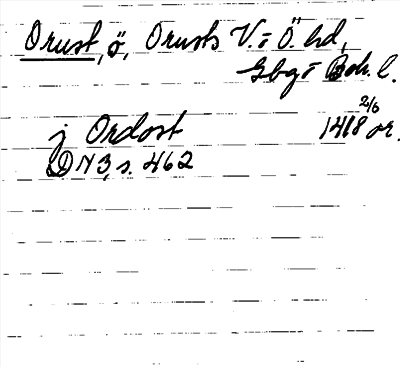 Orust, ö, Orusts V. o Ö. hd,
Gbg o Boh. l.
2/6
j Ordost 1418 or.
DN 3, s. 462